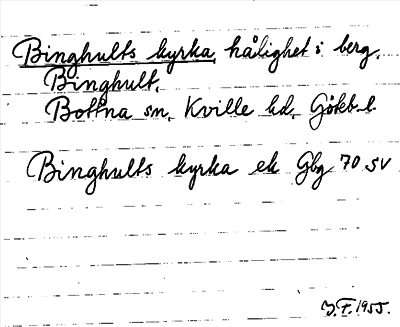 Binghults kyrka, hålighet i berg.
Binghult.
Bottna sn, Kville hd, Götebl
Binghults kyrka ek Gbg 70 SV
J.F. 1955.